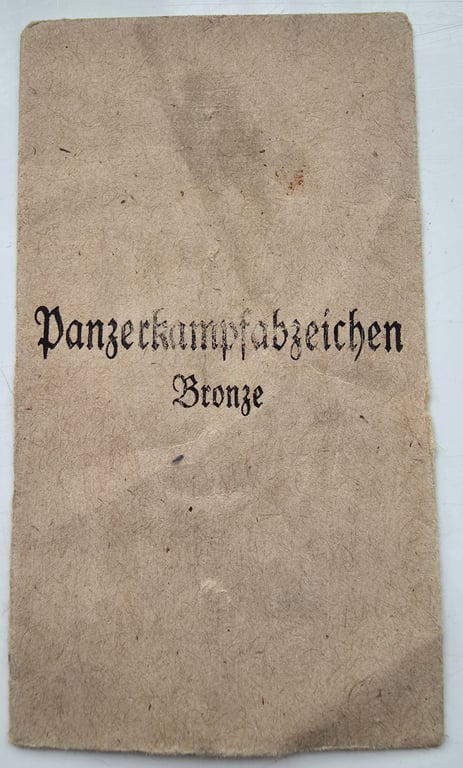 Panzerkampfabzeichen
Bronze